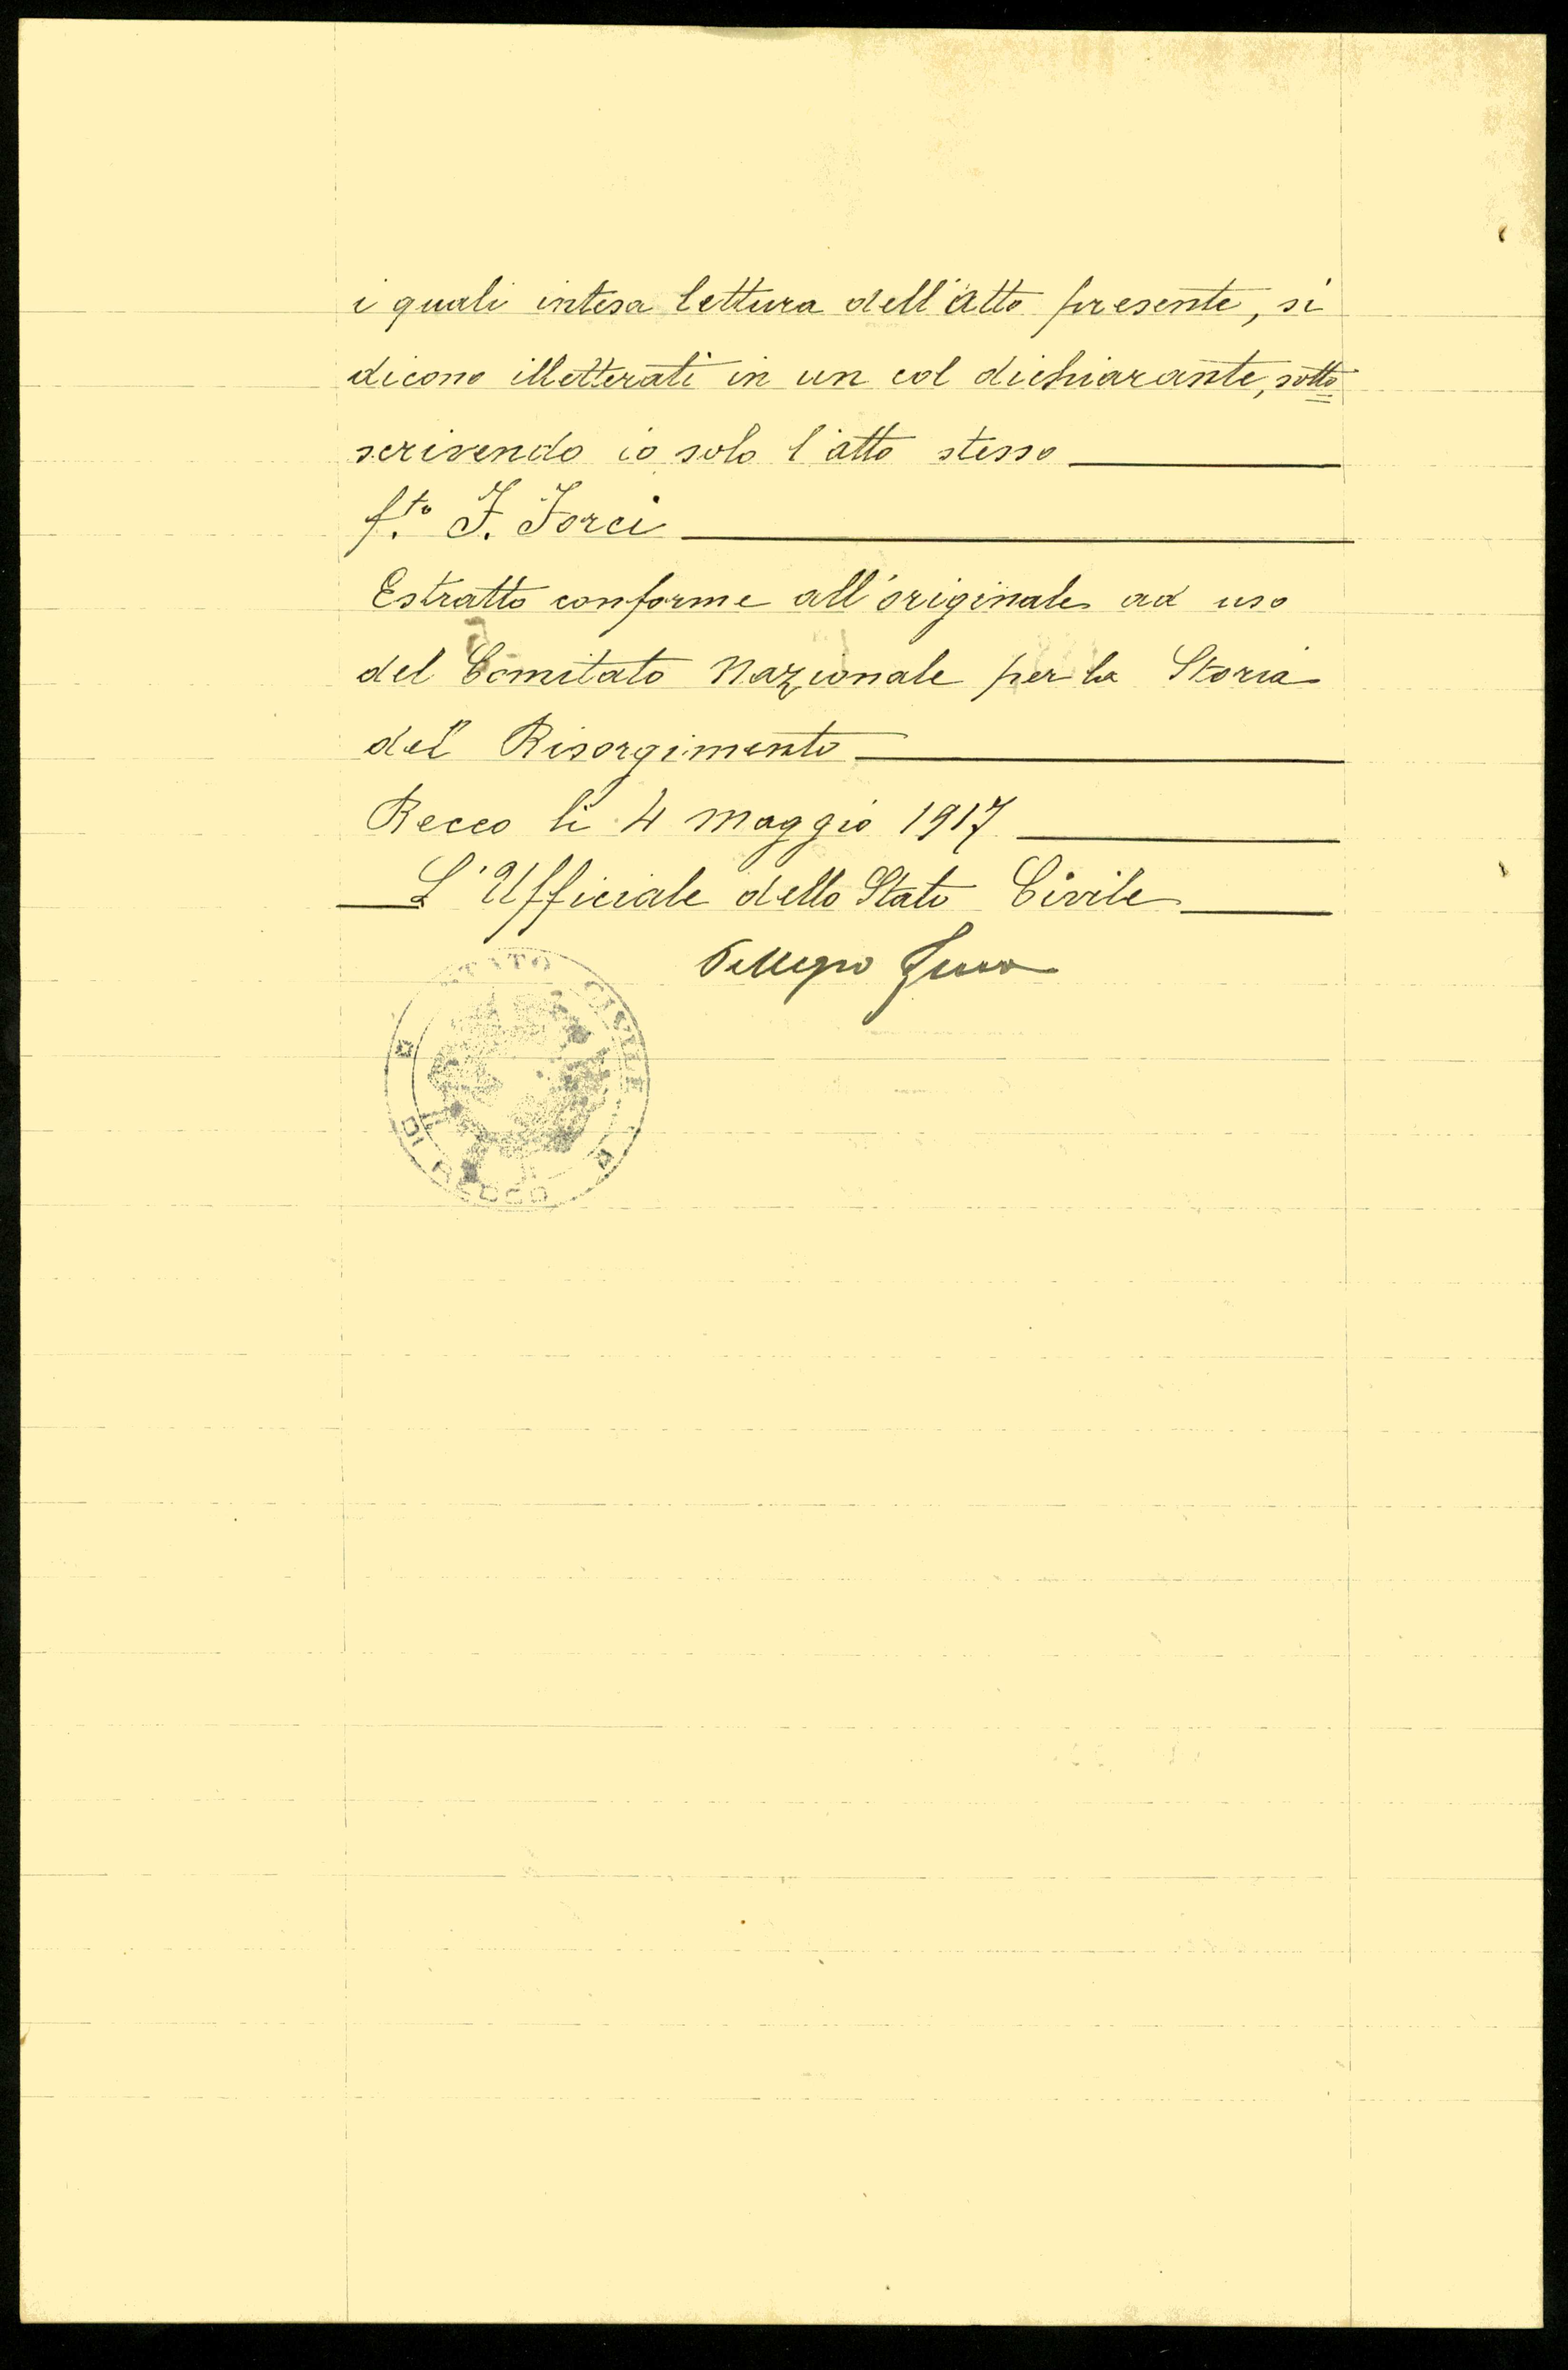 i quali intesa lettura dell'Atto presente, si
dicono illetterati in un col dichiarante, sotto=
scrivendo io solo l'atto stesso
f.to F. Forci
Estratto conforme all'originale ad uso
del Comitato Nazionale per la Storia
del Risorgimento
Recco li 4 Maggio 1917
L'Ufficiale dello Stato Civile
STATO CIVILE
DI RECCO